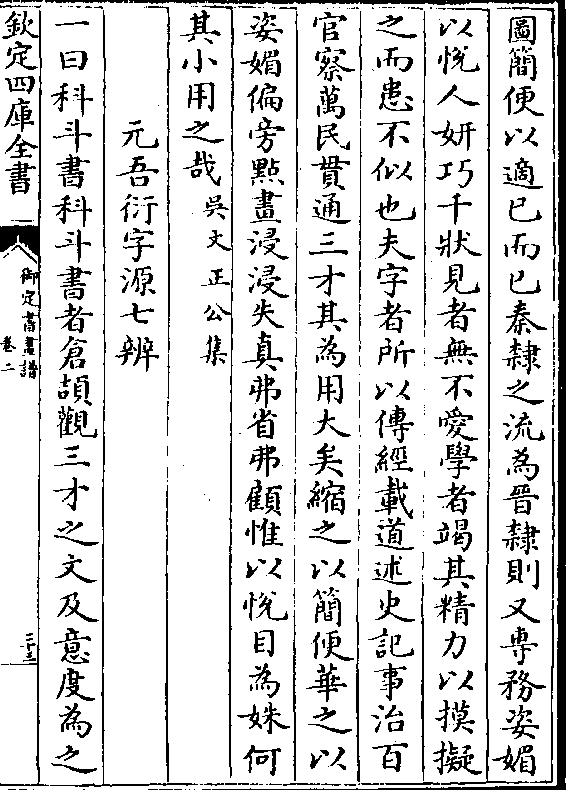 圖簡便以適已而已秦隸之流為晉隸則又專務姿媚
以悅人妍巧千狀見者無不愛學者竭其精力以摸擬
之而患不似也夫字者所以傳經載道述史記事治百
官察萬民貫通三才其為用大矣縮之以簡便華之以
姿媚偏旁點畫浸浸失真弗省弗顧惟以悅目為姝何
其小用之哉吳文正公集
元吾衍字源七辨
一曰科斗書科斗書者倉頡觀三才之文及意度為之
欽定四庫全書
御定書畫譜
卷二
三十三